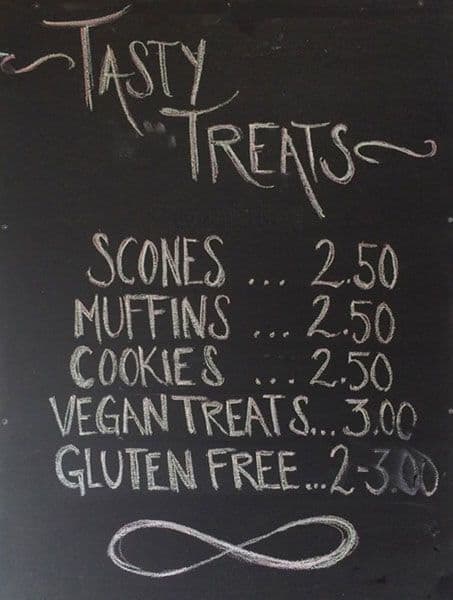 TASTY
TREATS
SCONES ... 2.50
MUFFINS ... 2.50
COOKIES ... 2.50
VEGAN TREATS... 3.00
GLUTEN FREE ... 2-3.00